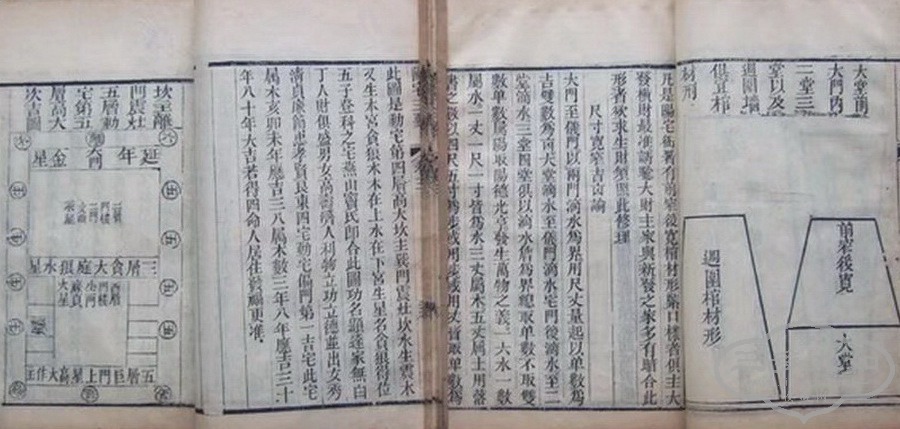 大堂前
大門內
二堂三
堂以及
週圍墻
俱宜棺
材形
前窄後寬
大堂
週圍棺材形
凡是陽宅衙署有前窄後寬棺材形口樣者俱主大
發橫財最准請驗大財主家與新發之家多有暗合此
形者欲求生財須照此修理
尺寸寬窄吉凶論
大門至儀門以兩門滴水為界用尺丈量起以單數為
吉雙數為凶大堂滴水至儀門滴水宅門後滴水至二
堂滴水三堂四堂俱以滴水為界總取單數不取雙
數單數屬陽陽德光亨發生萬物之義一六水一數
屬水一丈一尺一寸皆為水三丈屬木五丈屬土用營
書之數以四尺五寸為步或用步或用丈皆取單數為
此圖是動宅第四層高大坎主巽門震灶坎水生震木
又生木宮貪狼木木在上水在下宮生星名貪狼得位
五子登科之宅燕山竇氏即合此圖功名顯達家無白
丁人財俱盛男女高壽濟人利物立功立德並出女秀
清貞廉節更孝賢良東四宅動宅偏門第一吉宅此宅
屬木亥卯未年應吉三八屬木數三年八年應吉三十
年八十年大吉若得四命人居住發福更准
坎主離
門震灶
五層動
宅第五
層高大
坎吉圖
延年
大門
金星
三層貪大庭狼水星
五層巨門上星高大作主